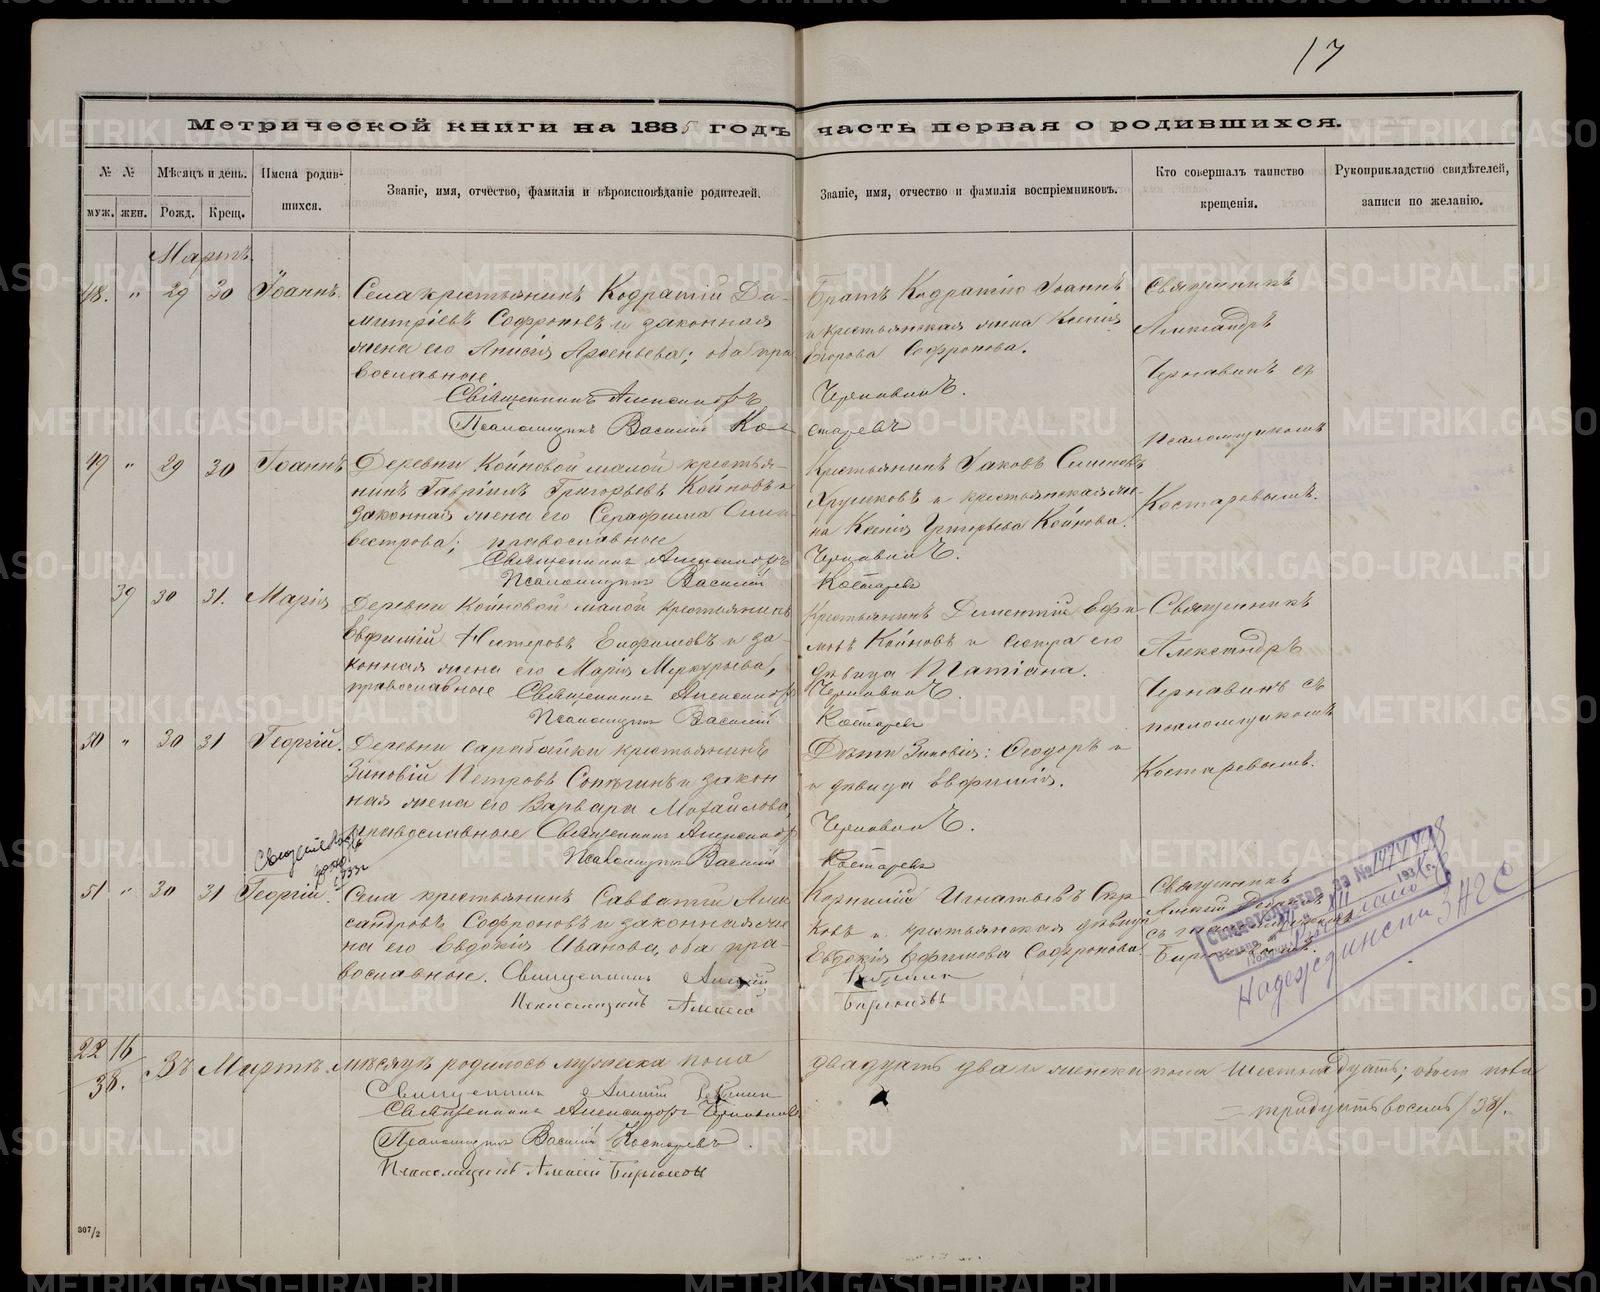 17
Метрической книги на 1885 годъ часть первая о родившихся.
№ №
Мѣсяцъ и день.
Имена родив-
шихся.
Званіе, имя, отчество, фамилія и вѣроисповѣданіе родителей.
Званіе, имя, отчество и фамилія воспріемниковъ.
Кто совершалъ таинство
крещенія.
Рукоприкладство свидѣтелей,
записи по желанію.
муж.
жен.
Рожд.
Крещ.
Мартъ
48. " 29 30 Іоаннъ.
Села крестьянинъ Кодратій Ди-
митріевъ Софроновъ и законная
жена его Анисія Арсеньева; оба пра-
вославные
Священникъ Александръ
Псаломщикъ Василій Ко-
Братъ Кодратія Іоаннъ
и крестьянская жена Ксенія
Егорова Софронова.
Чернавинъ.
старевъ
Священникъ
Александръ
Чернавинъ съ
псаломщикомъ
Костаревымъ.
49 " 29 30 Іоаннъ
Деревни Койновой малой крестья-
нинъ Гавріилъ Григорьевъ Койновъ и
законная жена его Серафима Сили-
вестрова; православные
Священникъ Александръ
Псаломщикъ Василій
Крестьянинъ Іаковъ
и крестьянская же-
на Ксенія Григорьева Койнова.
Чернавинъ.
Костаревъ
39 30 31. Марія
Деревни Койновой малой крестьянинъ
Евфимій Нестеровъ и за-
конная жена его Марія Меркурьева,
православные
Священникъ Александръ
Псаломщикъ Василій
Крестьянинъ Дементій Ефи-
мовъ Койновъ и сестра его
дѣвица Татіана.
Чернавинъ.
Костаревъ
Священникъ
Александръ
Чернавинъ съ
псаломщикомъ
Костаревымъ.
50 " 30 31 Георгій.
Деревни крестьянинъ
Зиновій Петровъ и закон
ная жена его Варвара Михайлова,
православные Священникъ Александръ
Псаломщикъ Василій
Дѣти Зиновія: Ѳеодоръ и
и дѣвица Евфимія.
Чернавинъ.
Костаревъ
51 " 30 31 Георгій.
Села крестьянинъ Савватій Алек
сандровъ Софроновъ и законная же
на его Евдокія Иванова, оба пра-
вославные. Священникъ Алексій
Псаломщикъ Алексій
Корнилій Игнатьевъ
и крестьянская дѣвица
Евдокія Ефимова Софронова.
Бирюковъ
Священникъ
Алексій
съ псаломщикомъ
Свидетельство за №
Надеждинский ЗАГС
22 16
38.
Въ Мартѣ мѣсяцѣ родилось мужеска пола двадцать два и женска пола шестнадцать; обоего пола
— тридцать восемь /38/.
Священникъ Алексій
Священникъ Александръ Чернавинъ
Псаломщикъ Василій Костаревъ.
Псаломщикъ Алексій Бирюковъ
307/2
METRIKI.GASO-URAL.RU